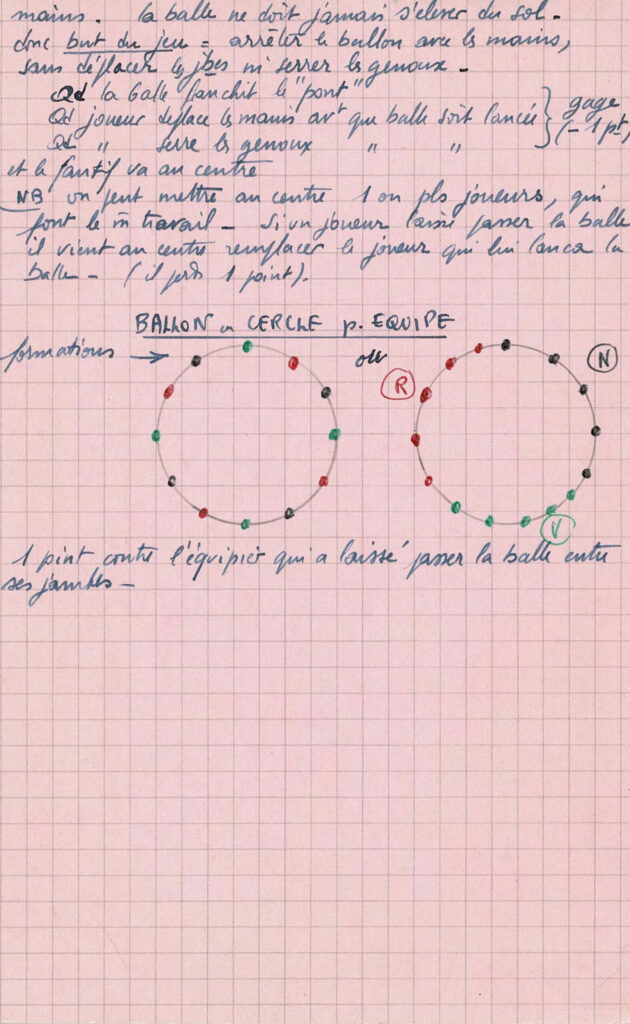 mains. la balle ne doit jamais s'élever du sol.
donc but du jeu = arrêter le ballon avec les mains,
sans déplacer les jbes ni serrer les genoux -
Qd la balle franchit le "pont"
Qd joueur déplace les mains avt que balle soit lancée } gage
Qd " serre les genoux " " (- 1 pt)
et le fautif va au centre
NB on peut mettre au centre 1 ou pls joueurs, qui
font le m̄ travail - Si un joueur laisse passer la balle
il vient au centre remplacer le joueur qui lui lança la
balle - (il perd 1 point).
BALLON au CERCLE p. EQUIPE
formations → ou
R N
V
1 pint contre l'équipier qui a laissé passer la balle entre
ses jambes -